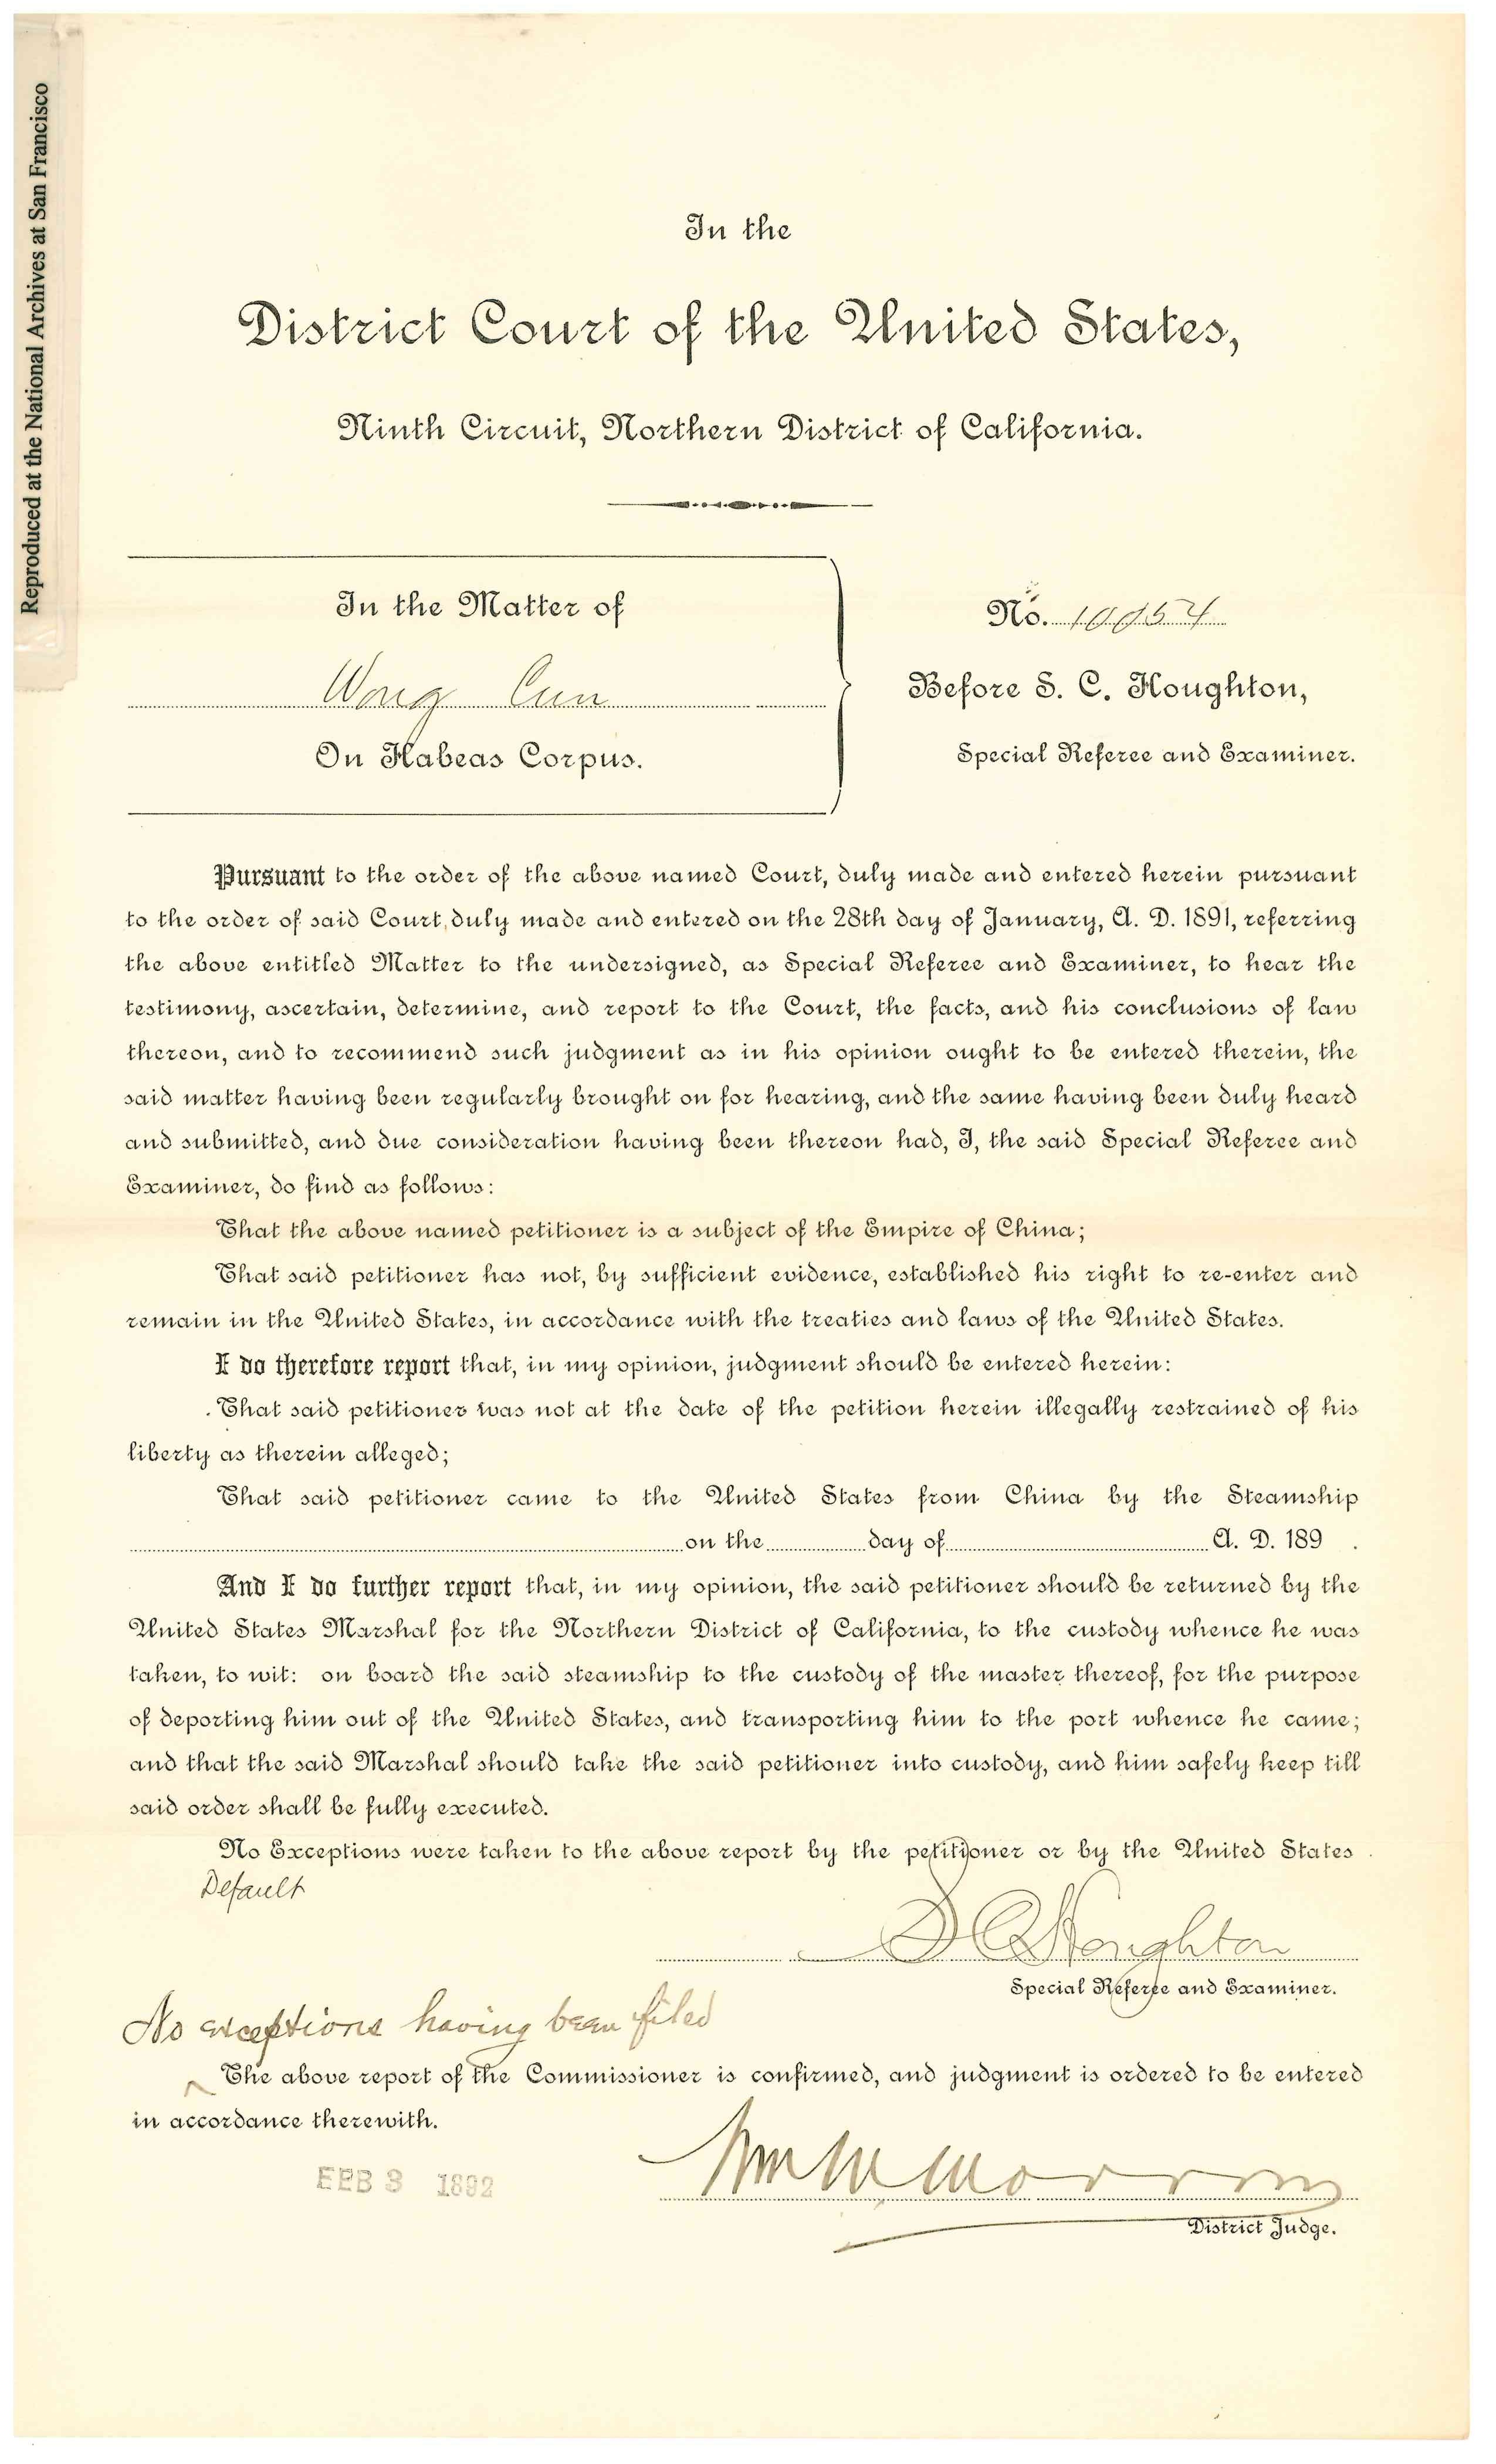 Reproduced at the National Archives at San Francisco
In the
District Court of the United States,
Ninth Circuit, Northern District of California.
In the Matter of
Wong Cun
On Habeas Corpus.
No. 10054
Before S. C. Houghton,
Special Referee and Examiner.
Pursuant to the order of the above named Court, duly made and entered herein pursuant
to the order of said Court, duly made and entered on the 28th day of January, A. D. 1891, referring
the above entitled Matter to the undersigned, as Special Referee and Examiner, to hear the
testimony, ascertain, determine, and report to the Court, the facts, and his conclusions of law
thereon, and to recommend such judgment as in his opinion ought to be entered therein, the
said matter having been regularly brought on for hearing, and the same having been duly heard
and submitted, and due consideration having been thereon had, I, the said Special Referee and
Examiner, do find as follows:
That the above named petitioner is a subject of the Empire of China;
That said petitioner has not, by sufficient evidence, established his right to re-enter and
remain in the United States, in accordance with the treaties and laws of the United States.
I do therefore report that, in my opinion, judgment should be entered herein:
That said petitioner was not at the date of the petition herein illegally restrained of his
liberty as therein alleged;
That said petitioner came to the United States from China by the Steamship
on the day of A. D. 189 .
And I do further report that, in my opinion, the said petitioner should be returned by the
United States Marshal for the Northern District of California, to the custody whence he was
taken, to wit: on board the said steamship to the custody of the master thereof, for the purpose
of deporting him out of the United States, and transporting him to the port whence he came;
and that the said Marshal should take the said petitioner into custody, and him safely keep till
said order shall be fully executed.
No Exceptions were taken to the above report by the petitioner or by the United States
Default
S C Houghton
Special Referee and Examiner.
No exceptions having been filed
The above report of the Commissioner is confirmed, and judgment is ordered to be entered
in accordance therewith.
FEB 3 1892
Wm W Morrow
District Judge.